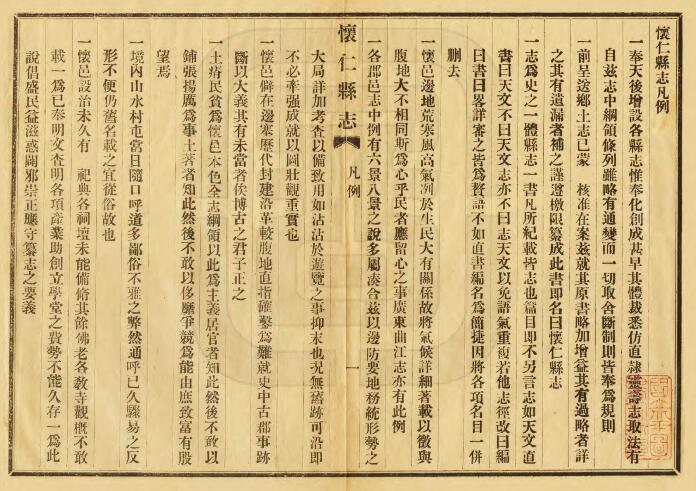 懷仁縣志凡例
一奉天後增設各縣志惟奉化創成甚早其體裁悉仿直隸靈壽志取法有
自茲志中綱領條列雖略有通變而一切取舍斷制則皆奉為規則
一前呈送鄉土志已蒙　核准在案茲就其原書略加增益其有過略者詳
之其有遺漏者補之謹遵檄限纂成此書即名曰懷仁縣志
一志為史之一體縣志一書凡所紀載皆志也篇目即不另言志如天文直
書曰天文不曰天文志亦不曰志天文以免語氣重複若他志徑改曰編
曰書曰畧詳審之皆為贅語不如直書編名為簡捷因將各項名目一併
刪去
一懷邑邊地荒寒風高氣冽於生民大有關係故將氣候詳細著載以徵與
腹地大不相同斯為心乎民者應留心之事廣東曲江志亦有此例
一各郡邑志中例有六景八景之說多屬湊合茲以邊防要地務統形勢之
懷仁縣志
凡例
一
大局詳加考查以備致用如沾沾於遊覽之事抑末也況無舊跡可沿即
不必牽强成就以圖壯觀重實也
一懷邑僻在邊塞歷代封建沿革較腹地直指確鑿為難就史中古郡事跡
斷以大義其有未當者俟博古之君子正之
一土瘠民貧為懷邑本色全志綱領以此為主義居官者知此然後不敢以
鋪張揚厲為事土著者知此然後不敢以侈靡爭競為能由庶致富有股
望焉
一境內山水村屯當日隨口呼道多鄙俗不雅之弊然通呼已久驟易之反
形不便仍舊名載之宜從俗故也
一懷邑設治未久有　祀典各祠壇未能備脩其餘佛老各教寺觀概不敢
載一為已奉明文查明各項產業助創立學堂之費勢不能久存一為此
說倡盛民益滋惑闢邪崇正應守纂志之要義